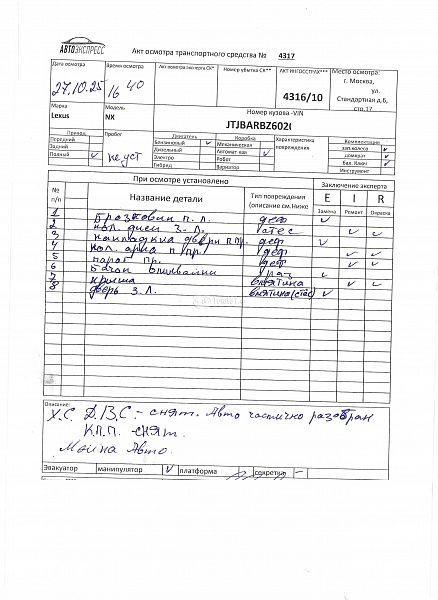 АВТОЭКСПРЕСС
Акт осмотра транспортного средства № 4317
Дата осмотра
27.10.25
Время осмотра
16 40
Акт осмотра эксперта СК*
Номер убытка СК**
АКТ ИНГОССТРАХ***
4316/10
Место осмотра:
г. Москва,
ул.
Стандартная д.6,
стр.17
Марка
Lexus
Модель
NX
Номер кузова -VIN
JTJBARBZ602
Привод
Передний
Задний
Полный ✓
Пробег
не уст
Двигатель
Бензиновый ✓
Дизельный
Электро
Гибрид
Коробка
Механическая
Автомат-кая ✓
Робот
Вариатор
Характеристика
повреждения
Комплектация
зап.колесо ✓
домкрат ✓
Бал. Ключ ✓
Инструмент
При осмотре установлено
Заключение эксперта
№ п/п
Название детали
Тип повреждения
(описание см.Ниже
E I R
Замена Ремонт Окраска
1 Брызговик п. л. деф ✓
2 кол. диск З. Л. стес ✓ ✓
3 накладка двери п пр. деф ✓
4 кол. арка п/пр. деф ✓ ✓
5 порог пр. деф ✓ ✓
6 ✓
7 крыша вмятина ✓ ✓
8 дверь З. Л. вмятина (стес) ✓
Описание:
Х.С Д.В.С - снят. Авто частично разобран
К.П.П. - снят.
Мойка Авто.
Эвакуатор манипулятор ✓ платформа секретки –